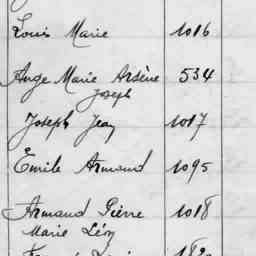 Louis Marie 1016
Ange Marie Arsène 534
Joseph
Joseph Jean 1017
Emile Armand 1095
Armand Pierre 1018
Marie Léon